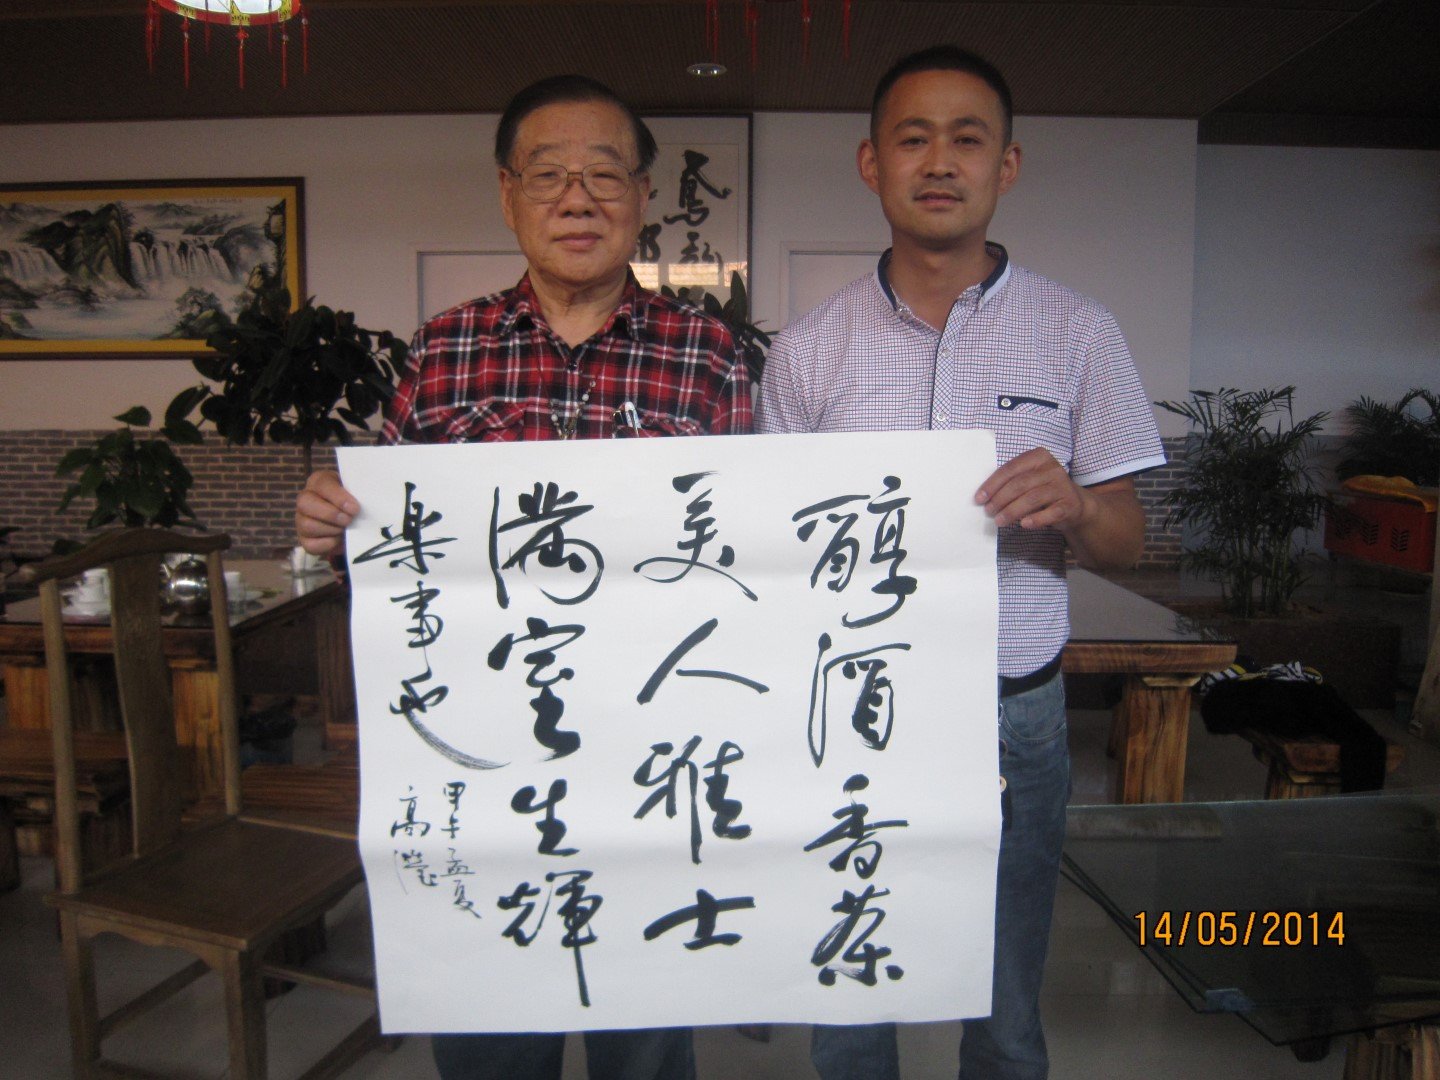 醇酒香茶
美人雅士
满室生輝
楽事也
甲午孟夏
高瀅
14/05/2014